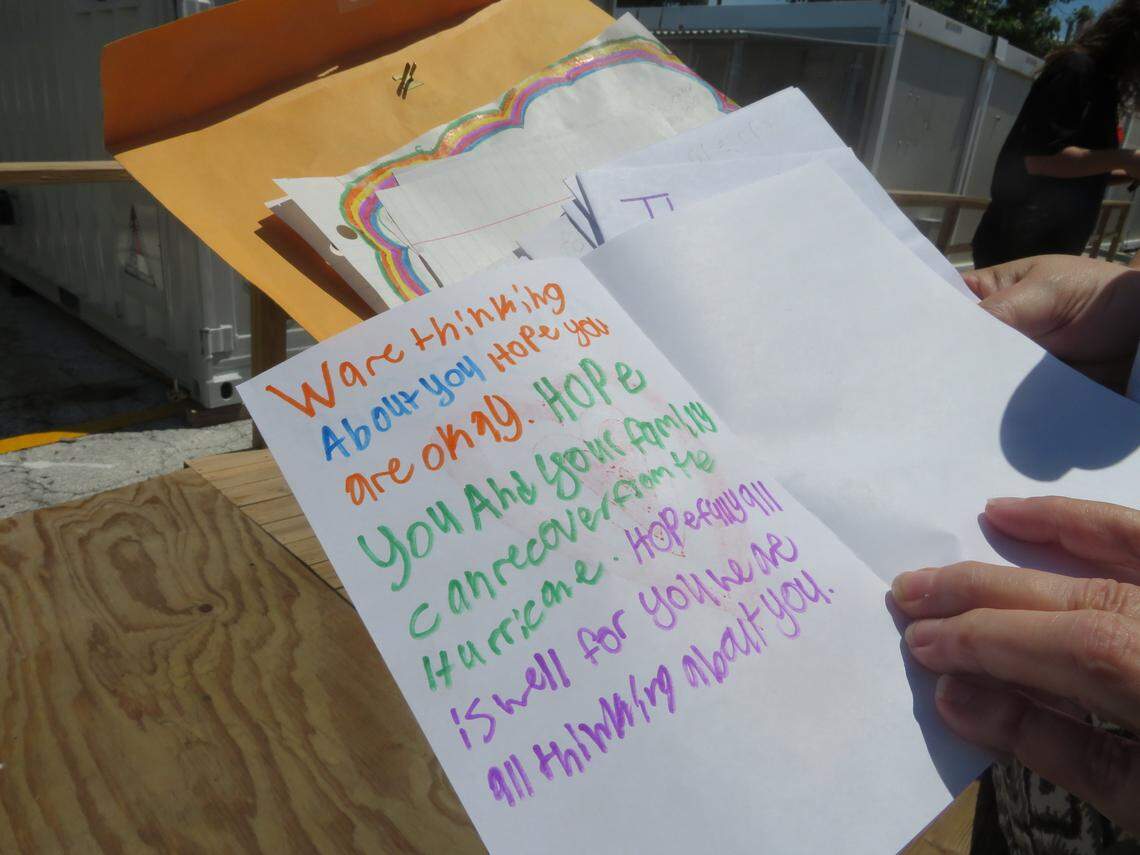 Ware thinking
About you Hope you
are okay. HOPE
you And your family
can recover from the
Hurricane. Hopefully all
is well for you we are
all thinking about you.